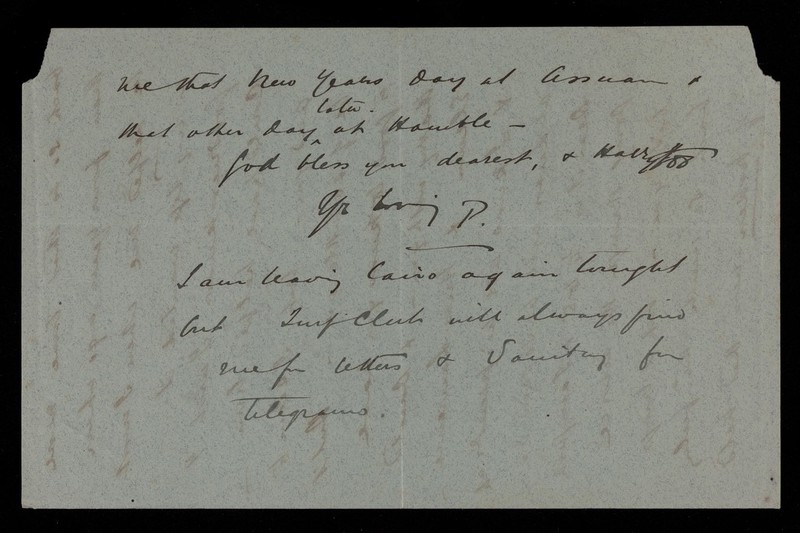 me that New Years Day at Assuan &
later.
that other day at Hamble —
God bless you dearest, & Harry too
Yr loving P.
I am leaving Cairo again tonight
but Turf Club will always find
me for letters & Sanitas for
telegrams.